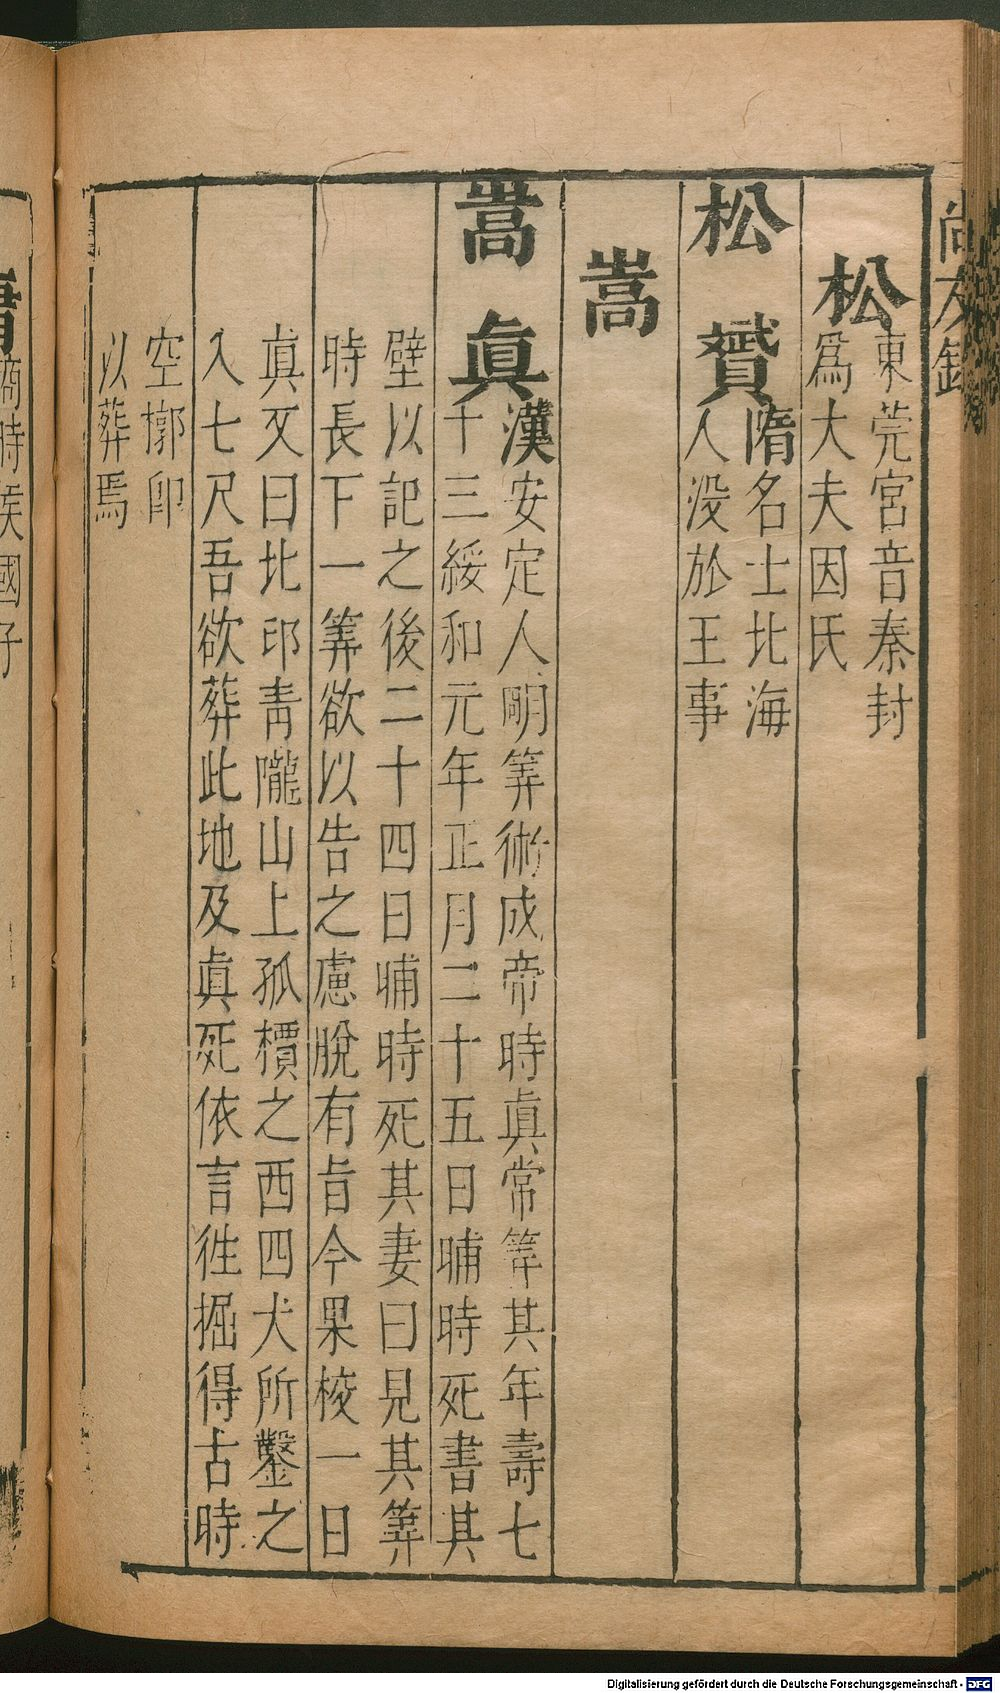 尚友錄
松
東莞宮音秦封
爲大夫因氏
松贇
隋名士北海
人没於王事
嵩
嵩眞
漢安定人明筭術成帝時眞常筭其年壽七
十三綏和元年正月二十五日晡時死書其
壁以記之後二十四日晡時死其妻曰見其筭
時長下一筭欲以告之慮脫有旨今果校一日
眞又曰北邙青隴山上孤檟之西四丈所鑿之
入七尺吾欲葬此地及眞死依言徃掘得古時
空槨卽
以葬焉
時
國子
Digitalisierung gefördert durch die Deutsche Forschungsgemeinschaft - DFG